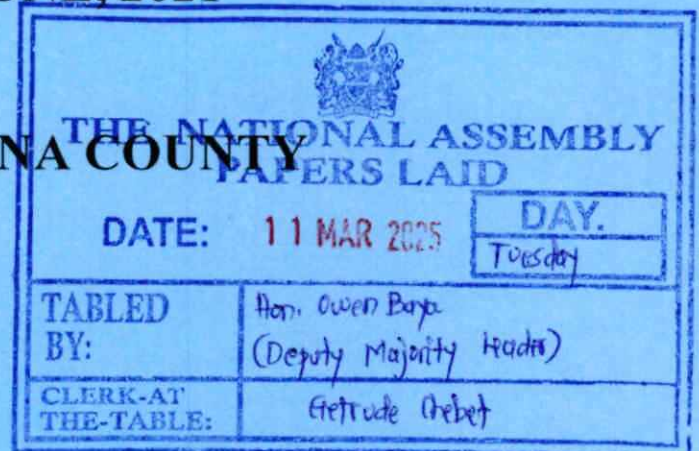 NA COUNTY
THE NATIONAL ASSEMBLY
PAPERS LAID
DATE: 11 MAR 2025
DAY.
Tuesday
TABLED BY:
Hon. Owen Baya
(Deputy Majority Leader)
CLERK-AT THE-TABLE:
Getrude Chebet